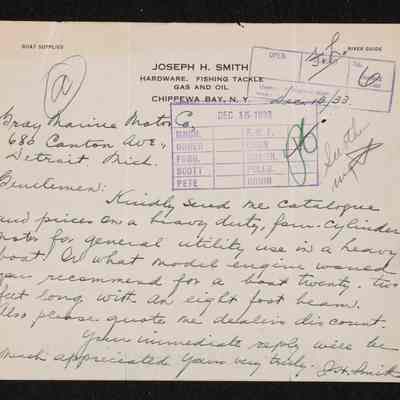 BOAT SUPPLIES
RIVER GUIDE
JOSEPH H. SMITH
HARDWARE, FISHING TACKLE
GAS AND OIL
CHIPPEWA BAY, N. Y.
Dec 13/33.
OPEN
DEC 15 1933
SCOTT
PETE
Gray Marine Motor Co,
680 Canton Ave.,
Detroit Mich.
Gentlemen: Kindly send me catalogue
and prices on a heavy duty, four-cylinder
motor for general utility use in a heavy
boat. Or what model engine would
you recommend for a boat twenty two
feet long with an eight foot beam.
Also please quote me dealers discount.
Your immediate reply will be
much appreciated Yours very truly. J.H. Smith